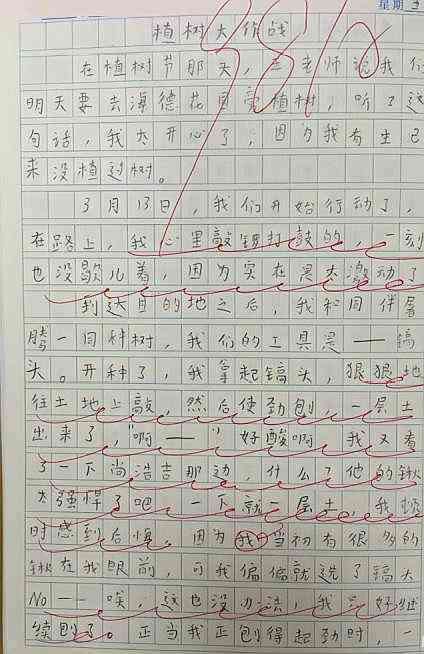 星期
植树大作战
在植树节那天，王老师说我们
明天要去海德花园种植树，听了这
句话，我太开心了，因为我有生已
来没植过树。
3月13日，我们开始行动了，
在路上，我心里敲锣打鼓的，一刻
也没歇儿着，因为实在是太激动了
到达目的地之后，我和同伴
腾一同种树，我们的工具是——镐
头。开种了，我拿起镐头，狠狠地
往土地上敲，然后使劲刨，一层土
出来了，“啊——”好酸啊 我又看
了一下尚浩吉那边，什么？他的锹
太强悍了吧 一下就一层土，我顿
时感到后悔，因为我当初有很多的
锹在我眼前，可我偏偏就选了镐头
No——唉，这也没办法，我只好继
续刨了。正当我正刨得起劲时，一